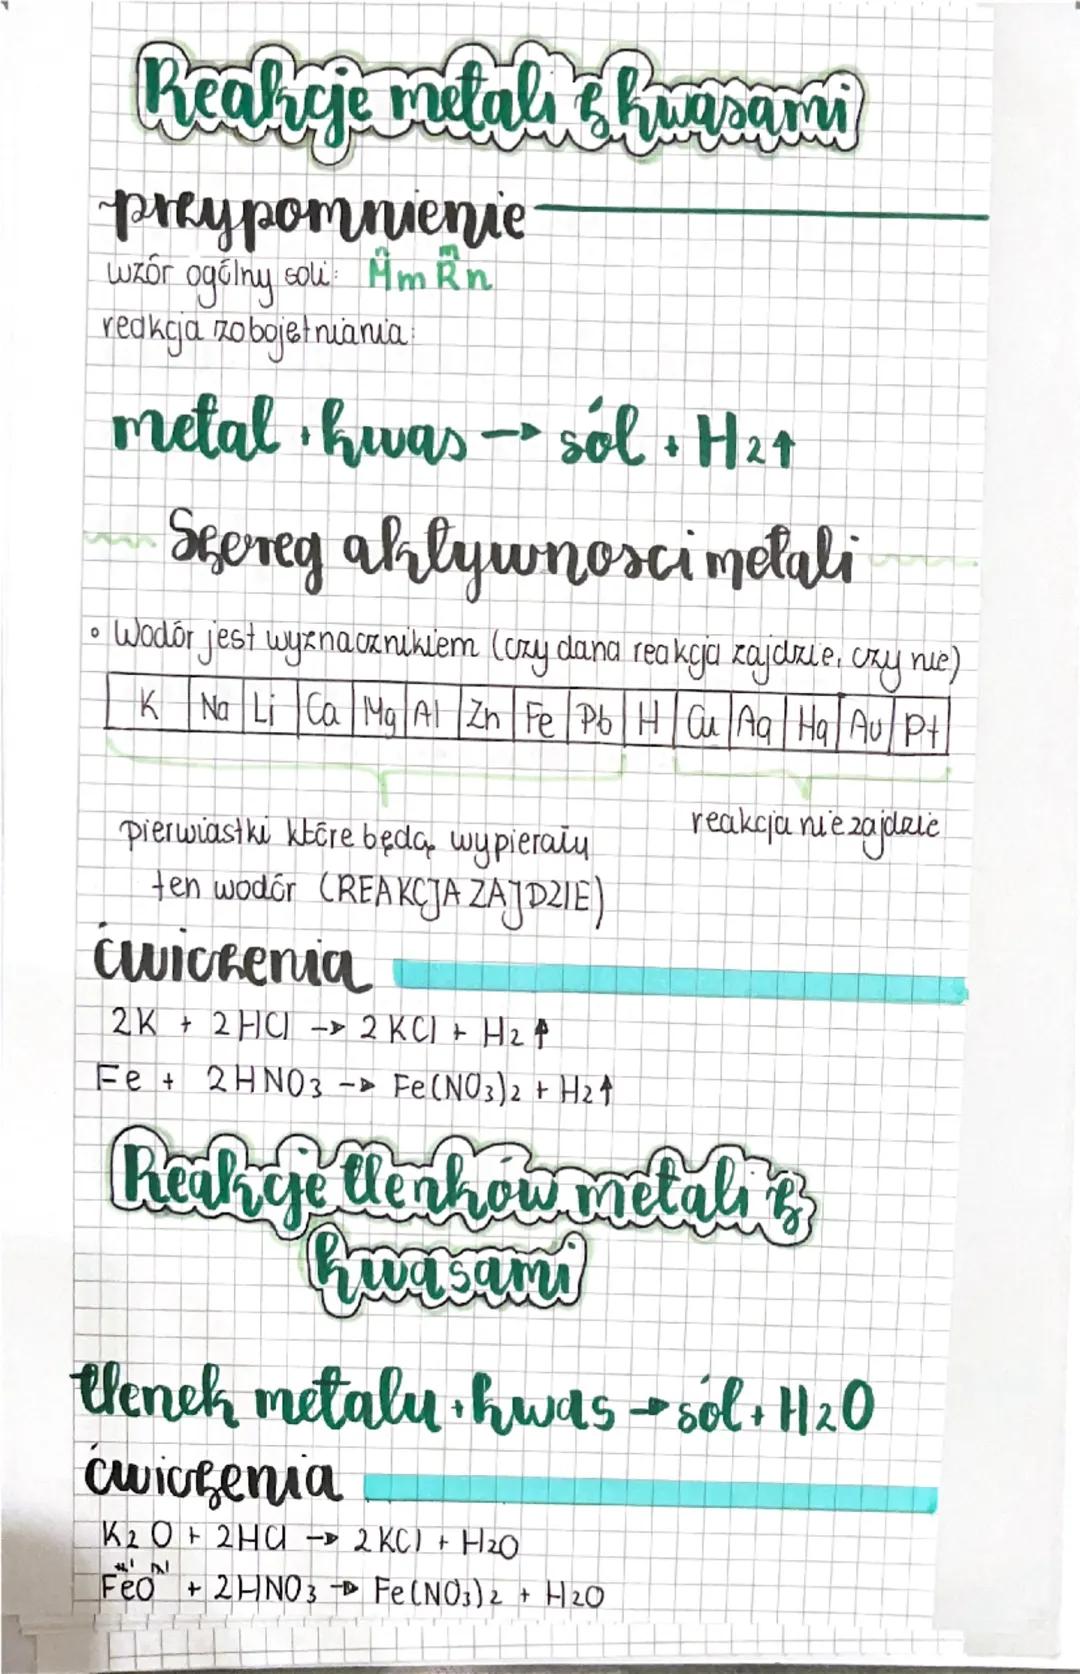 Reakcje metali z kwasami
przypomnienie
wzór ogólny soli: MmRn
n m
reakcja zobojętniania:
metal + kwas → sól + H2↑
Szereg aktywnosci metali
• Wodór jest wyznacznikiem (czy dana reakcja zajdzie, czy nie)
K Na Li Ca Mg Al Zn Fe Pb H Cu Ag Hg Au Pt
pierwiastki które będą wypierały
ten wodór (REAKCJA ZAJDZIE)
reakcja nie zajdzie
ćwiczenia
2K + 2HCl → 2KCl + H2↑
Fe + 2HNO3 → Fe(NO3)2 + H2↑
Reakcje tlenków metali z
kwasami
tlenek metalu + kwas → sól + H2O
ćwiczenia
K2O + 2HCl → 2KCl + H2O
FeO + 2HNO3 → Fe(NO3)2 + H2O